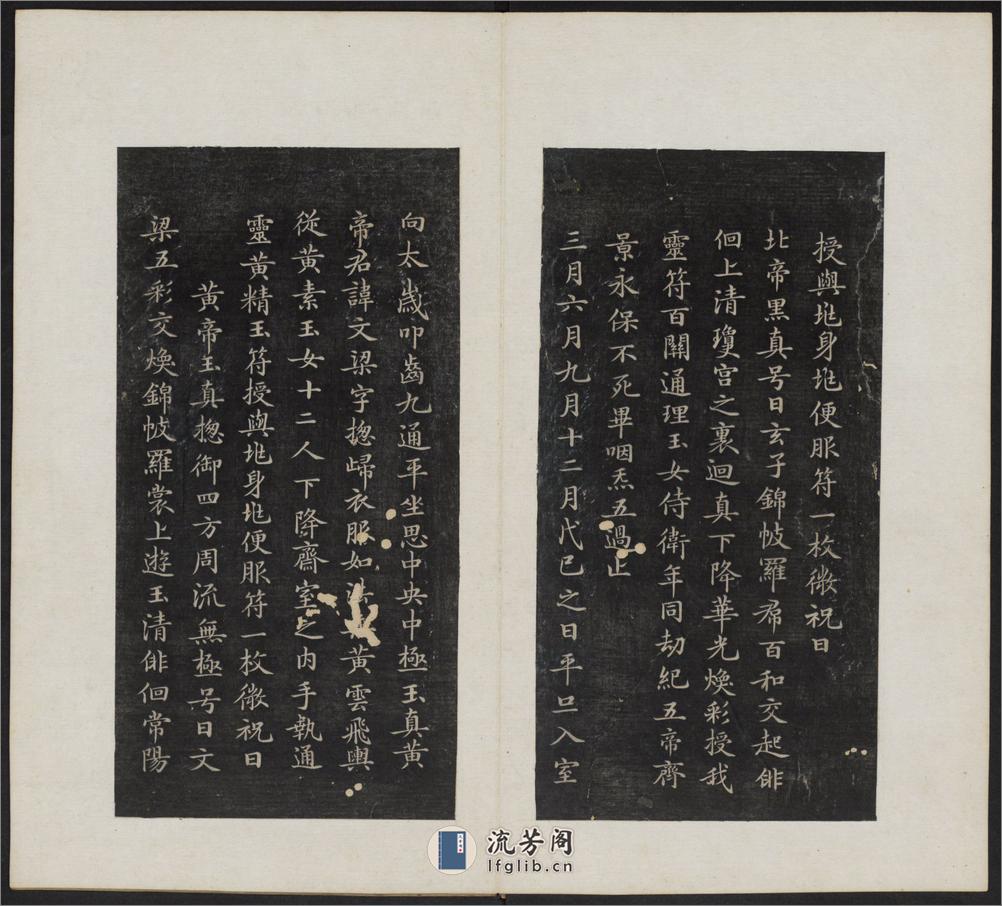 授與兆身兆便服符一枚微祝曰
北帝黑真号曰玄子錦帔羅帬百和交起俳
佪上清瓊宫之裏迴真下降華光煥彩授我
靈符百關通理玉女侍衛年同劫紀五帝齊
景永保不死畢咽炁五過止
三月六月九月十二月戊己之日平旦入室
向太歲叩齒九通平坐思中央中極玉真黃
帝君諱文梁字揔歸衣服如法 黃雲飛輿
從黃素玉女十二人下降齋室之内手執通
靈黃精玉符授與兆身兆便服符一枚微祝曰
黃帝玉真揔御四方周流無極号曰文
梁五彩交煥錦帔羅裳上遊玉清俳佪常陽
流芳阁
lfglib.cn